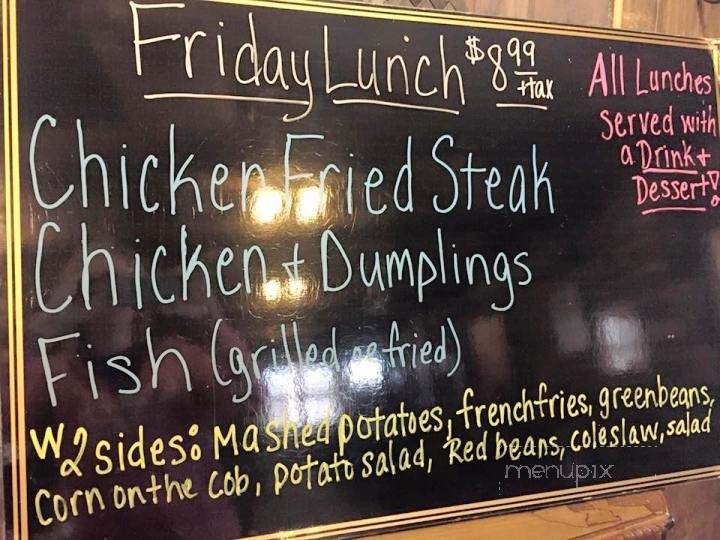 Friday Lunch $8.99 +tax
All Lunches
served with
a Drink +
Dessert!
Chicken Fried Steak
Chicken + Dumplings
Fish (grilled or fried)
W2 sides: Mashed potatoes, frenchfries, greenbeans,
corn on the cob, potato salad, Red beans, coleslaw, salad
menupix